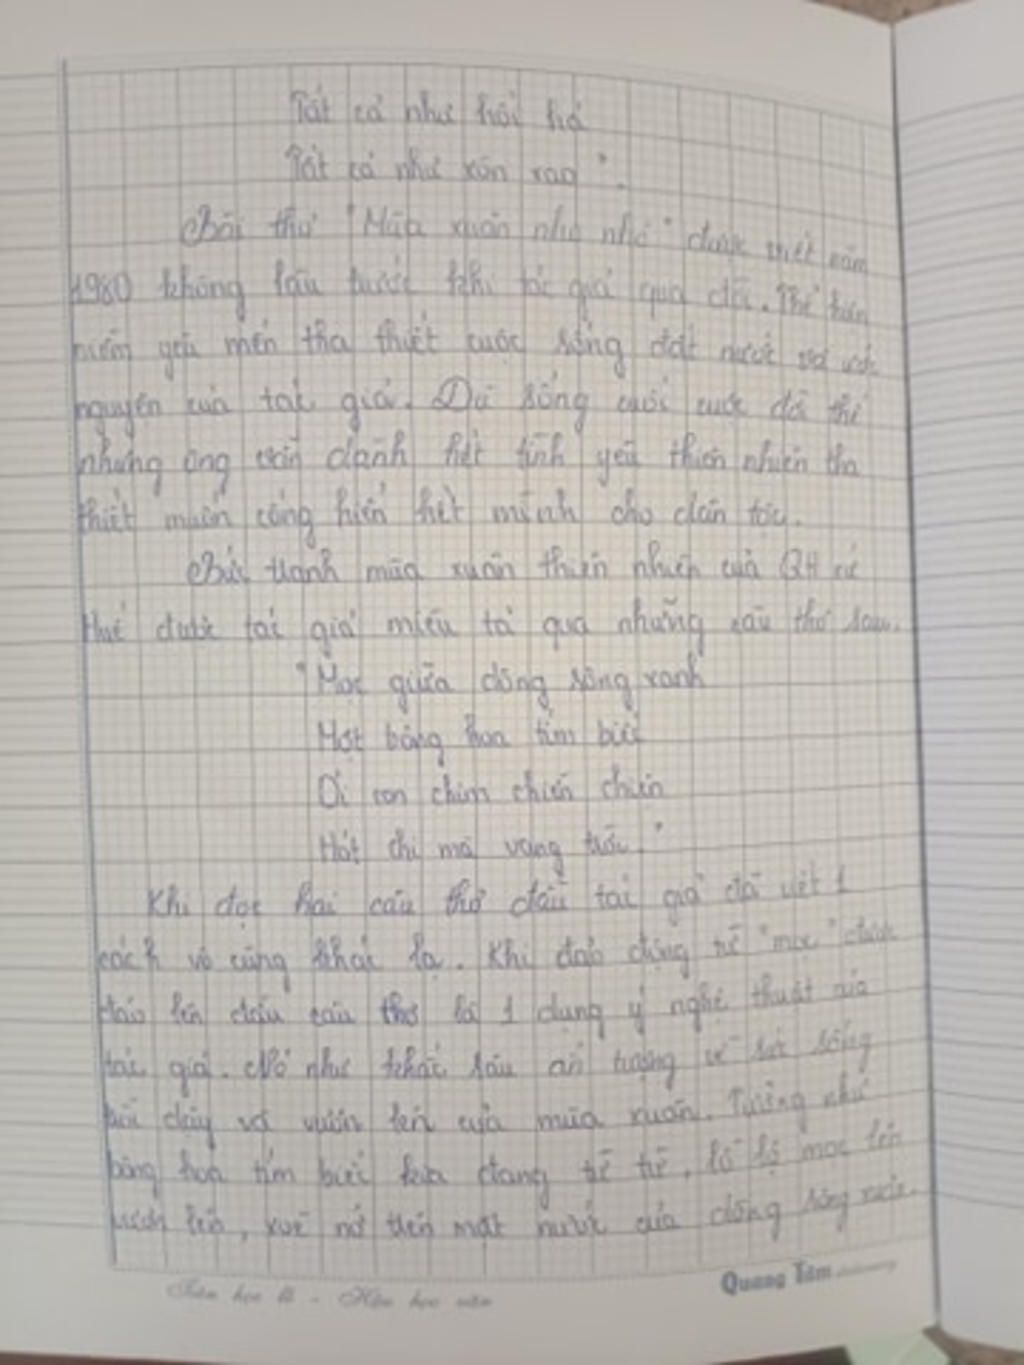 Tất cả như hối hả
Tất cả như xôn xao".
Bài thơ "Mùa xuân nho nhỏ" được viết năm
1980 không lâu trước khi tác giả qua đời. Thể hiện
niềm yêu mến tha thiết cuộc sống đất nước và ước
nguyện của tác giả. Dù sống cuối cuộc đời thì
nhưng ông vẫn dành hết tình yêu thiên nhiên tha
thiết muốn cống hiến hết mình cho dân tộc.
Bức tranh mùa xuân thiên nhiên của QH
được tác giả miêu tả qua những câu thơ sau.
"Mọc giữa dòng sông xanh
Một bông hoa tím biếc
Ơi con chim chiền chiện
Hót chi mà vang trời."
Khi đọc hai câu thơ đầu tác giả đã viết 1
cách vô cùng khác lạ. Khi đảo động từ "mọc" được
đảo lên đầu câu thơ là 1 dụng ý nghệ thuật của
tác giả. Nó như khắc sâu ấn tượng về sức sống
trỗi dậy và vươn lên của mùa xuân. Tưởng như
bông hoa tím biếc kia đang từ từ, lồ lộ mọc lên
vươn lên, xoè nở trên mặt nước của dòng sông xanh.
Tiên học lễ - Hậu học văn
Quang Tâm